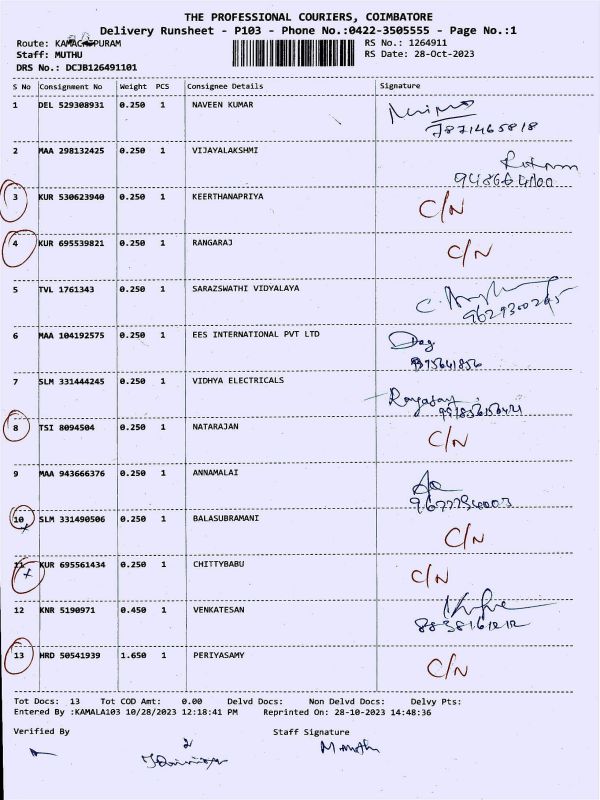 THE PROFESSIONAL COURIERS, COIMBATORE
Delivery Runsheet - P103 - Phone No.:0422-3505555 - Page No.:1
Route: KAMAGAPURAM RS No.: 1264911
Staff: MUTHU RS Date: 28-Oct-2023
DRS No.: DCJB126491101
S No Consignment No Weight PCS Consignee Details Signature
1 DEL 529308931 0.250 1 NAVEEN KUMAR
7871465818
2 MAA 298132425 0.250 1 VIJAYALAKSHMI
3 KUR 530623940 0.250 1 KEERTHANAPRIYA C/N
4 KUR 695539821 0.250 1 RANGARAJ C/N
5 TVL 1761343 0.250 1 SARAZSWATHI VIDYALAYA
6 MAA 104192575 0.250 1 EES INTERNATIONAL PVT LTD
7 SLM 331444245 0.250 1 VIDHYA ELECTRICALS
8 TSI 8094504 0.250 1 NATARAJAN C/N
9 MAA 943666376 0.250 1 ANNAMALAI
10 SLM 331490506 0.250 1 BALASUBRAMANI C/N
11 KUR 695561434 0.250 1 CHITTYBABU C/N
12 KNR 5190971 0.450 1 VENKATESAN
13 HRD 50541939 1.650 1 PERIYASAMY C/N
Tot Docs: 13 Tot COD Amt: 0.00 Delvd Docs: Non Delvd Docs: Delvy Pts:
Entered By :KAMALA103 10/28/2023 12:18:41 PM Reprinted On: 28-10-2023 14:48:36
Verified By Staff Signature